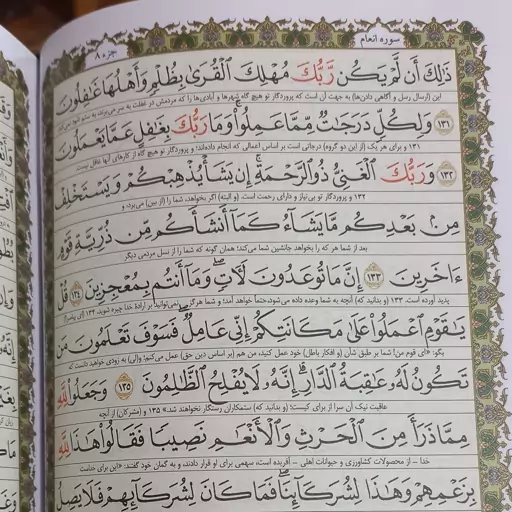 سوره انعام
جزء ۸
ذَٰلِكَ أَن لَّمْ يَكُن رَّبُّكَ مُهْلِكَ الْقُرَىٰ بِظُلْمٍ وَأَهْلُهَا غَافِلُونَ
این (ارسال رسل و آگاهی دادن‌ها) به جهت آن است که پروردگار تو هیچ گاه شهرها و آبادی‌ها را که مردمش در غفلت به سر می‌برند، به ستم نابود نمی‌کند
۱۳۱ وَلِكُلٍّ دَرَجَاتٌ مِّمَّا عَمِلُوا ۚ وَمَا رَبُّكَ بِغَافِلٍ عَمَّا يَعْمَلُونَ
۱۳۱ و برای هر یک (از این دو گروه) درجاتی است بر اساس اعمالی که انجام داده‌اند؛ و پروردگار تو هیچ گاه از کارهای آنها غافل نیست
۱۳۲ وَرَبُّكَ الْغَنِيُّ ذُو الرَّحْمَةِ ۚ إِن يَشَأْ يُذْهِبْكُمْ وَيَسْتَخْلِفْ
۱۳۲ و پروردگار تو بی‌نیاز و دارای رحمت است. (و البته) اگر بخواهد شما را (از بین) می‌برد؛ و
مِن بَعْدِكُم مَّا يَشَاءُ كَمَا أَنشَأَكُم مِّن ذُرِّيَّةِ قَوْمٍ
بعد از شما هر که را بخواهد جانشین شما می‌کند؛ همان گونه که شما را از نسل مردمی دیگر
ءَاخَرِينَ ۱۳۳ إِنَّ مَا تُوعَدُونَ لَآتٍ ۖ وَمَا أَنتُم بِمُعْجِزِينَ ۱۳۴ قُلْ
پدید آورده است. ۱۳۳ (و بدانید که) آنچه به شما وعده داده می‌شود، حتماً خواهد آمد؛ و شما هرگز نمی‌توانید بر ارادهٔ خدا چیره شوید. ۱۳۴ (ای پیامبر!)
يَا قَوْمِ اعْمَلُوا عَلَىٰ مَكَانَتِكُمْ إِنِّي عَامِلٌ ۖ فَسَوْفَ تَعْلَمُونَ مَن
بگو: «ای قوم من! شما بر طبق شأن (و افکار باطل) خود عمل کنید، من هم (بر اساس دین حق) عمل می‌کنم؛ و(لی) به زودی خواهید دانست که
تَكُونُ لَهُ عَاقِبَةُ الدَّارِ ۗ إِنَّهُ لَا يُفْلِحُ الظَّالِمُونَ ۱۳۵ وَجَعَلُوا لِلَّهِ
عاقبت نیک آن سرا از برای کیست؛ (و بدانید که) ستمکاران رستگار نخواهند شد.» ۱۳۵ و (مشرکان) از آنچه
مِمَّا ذَرَأَ مِنَ الْحَرْثِ وَالْأَنْعَامِ نَصِيبًا فَقَالُوا هَٰذَا لِلَّهِ
خدا - از محصولات کشاورزی و حیوانات اهلی - آفریده است، سهمی برای او قرار دادند، و به گمان خود گفتند: «این برای خداست
بِزَعْمِهِمْ وَهَٰذَا لِشُرَكَائِنَا ۖ فَمَا كَانَ لِشُرَكَائِهِمْ فَلَا يَصِلُ